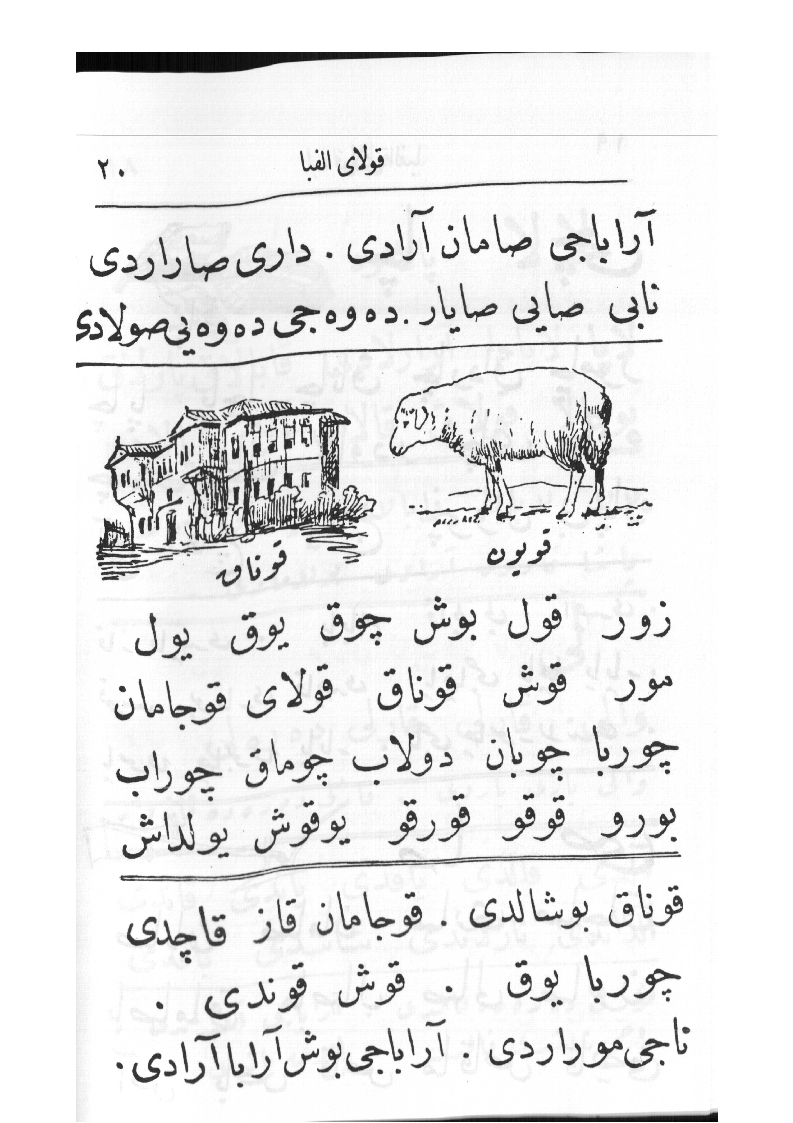 قولای الفبا ٢٠
آراباجی صامان آرادی . داری صاراردی
نابی صایی صایار . ده وه جی ده وه یی صولادی
قویون
قوناق
زور قول بوش چوق یوق یول
مور قوش قوناق قولای قوجامان
چوربا چوبان دولاب چوماق چوراب
بورو قوقو قورقو یوقوش یولداش
قوناق بوشالدی . قوجامان قاز قاچدی
چوربا یوق . قوش قوندی .
ناجی موراردی . آراباجی بوش آرابا آرادی .